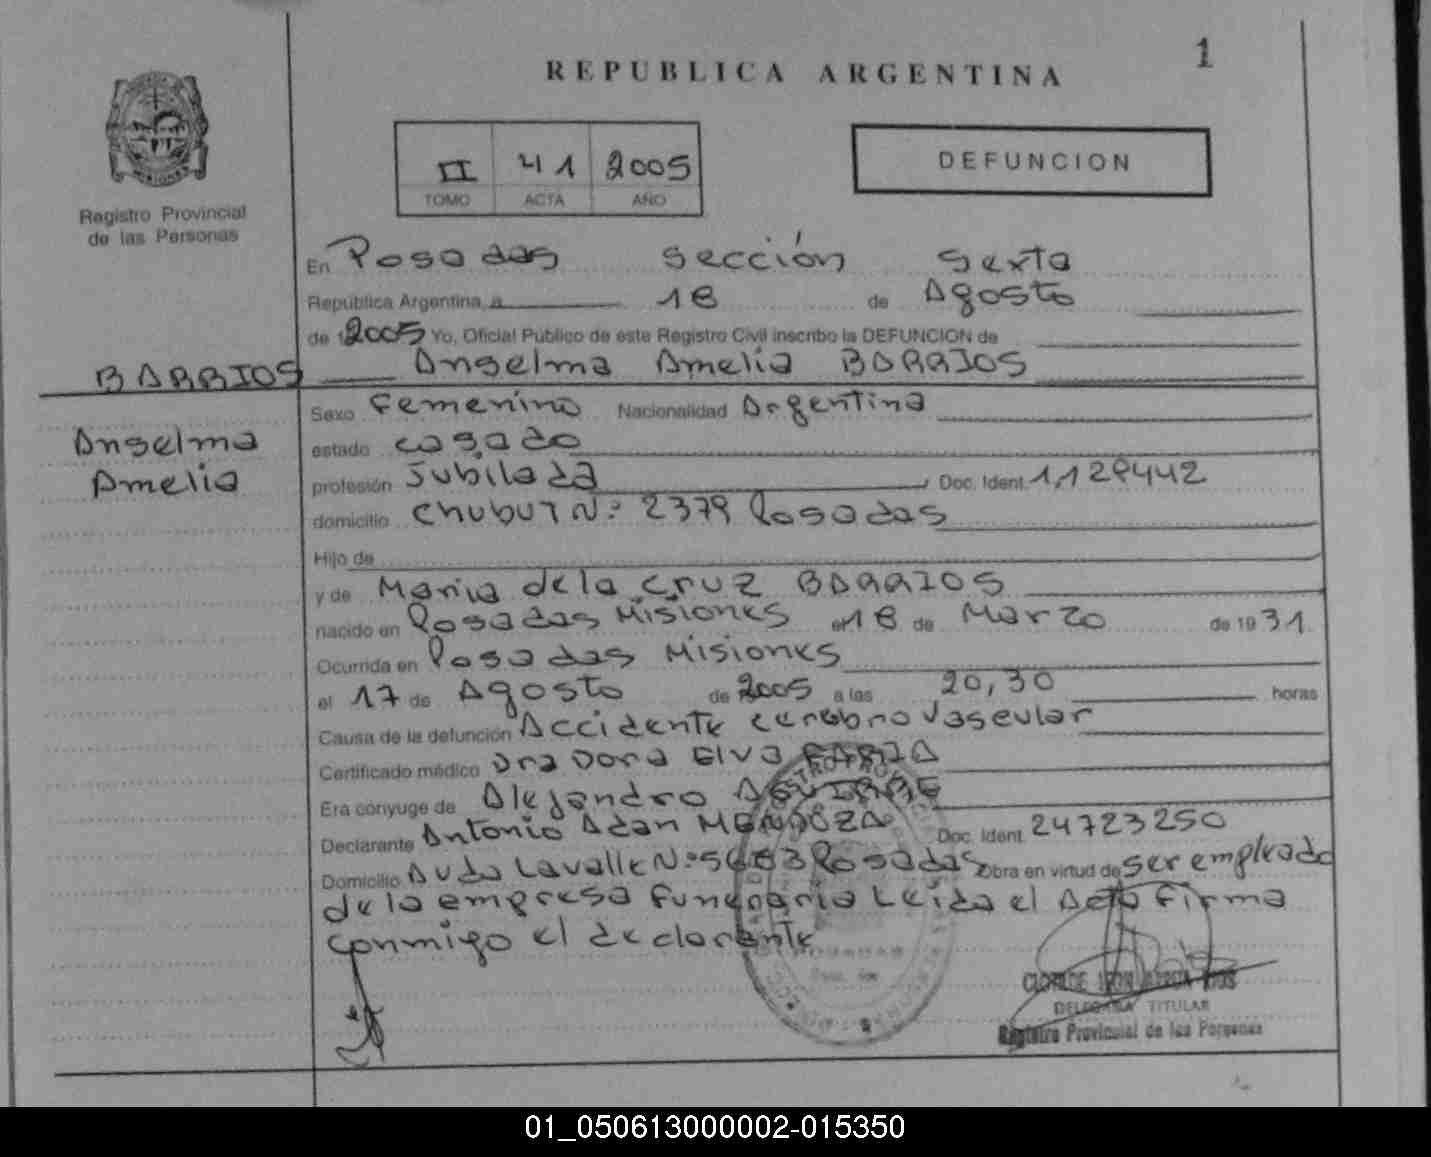 1
REPUBLICA ARGENTINA
II 41 2005
TOMO ACTA AÑO
DEFUNCION
Registro Provincial
de las Personas
En Posadas sección sexta
República Argentina, a 18 de Agosto
de 1 2005 Yo, Oficial Público de este Registro Civil inscribo la DEFUNCION de
BARRIOS Anselma Amelia BARRIOS
Anselma
Amelia
Sexo Femenino Nacionalidad Argentina
estado casado
profesión Jubilada Doc. Ident.
domicilio Chubut N: 2379 Posadas
Hijo de
y de Maria de la Cruz BARRIOS
nacido en Posadas Misiones el 18 de Marzo de 19 31.
Ocurrida en Posadas Misiones
el 17 de Agosto de 2005 a las 20,30 horas
Causa de la defunción Accidente cerebro vascular
Certificado médico Dra Dora Elva FARIA
Era cónyuge de Alejandro AGUIRRE
Declarante Antonio Adan MENDOZA Doc. Ident. 24723250
Domicilio Avda Lavalle Posadas Obra en virtud de ser empleado
de la empresa Funeraria Leída el Acta Firma
conmigo el declarante
DELEGADA TITULAR
Registro Provincial de las Personas
01_050613000002-015350